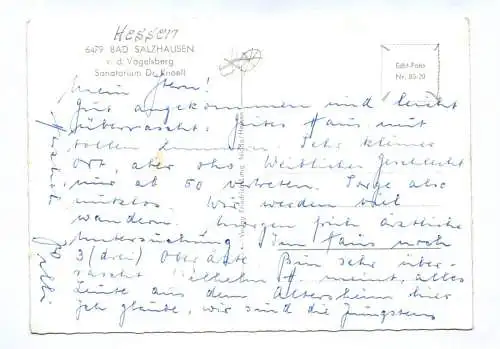 Hessen
6479 BAD SALZHAUSEN
v. d. Vogelsberg
Sanatorium Dr. Knoell
Echt-Foto
Nr. 85/29
Mein Stern!
Gut angekommen und leicht
überrascht. Gutes Haus mit
tollen Zimmern. Sehr kleiner
Ort, aber oho. Weibliches Geschlecht
nur ab 60 vertreten. Sorge also
nutzlos. Wir werden viel
wandern. Morgen früh ärztliche
Untersuchung. Im Haus noch
3 (drei) Oberärzte. Bin sehr über-
rascht. Wilhelm H. meint, alles
Leute aus dem Altersheim hier
Ich glaube, wir sind die Jüngsten